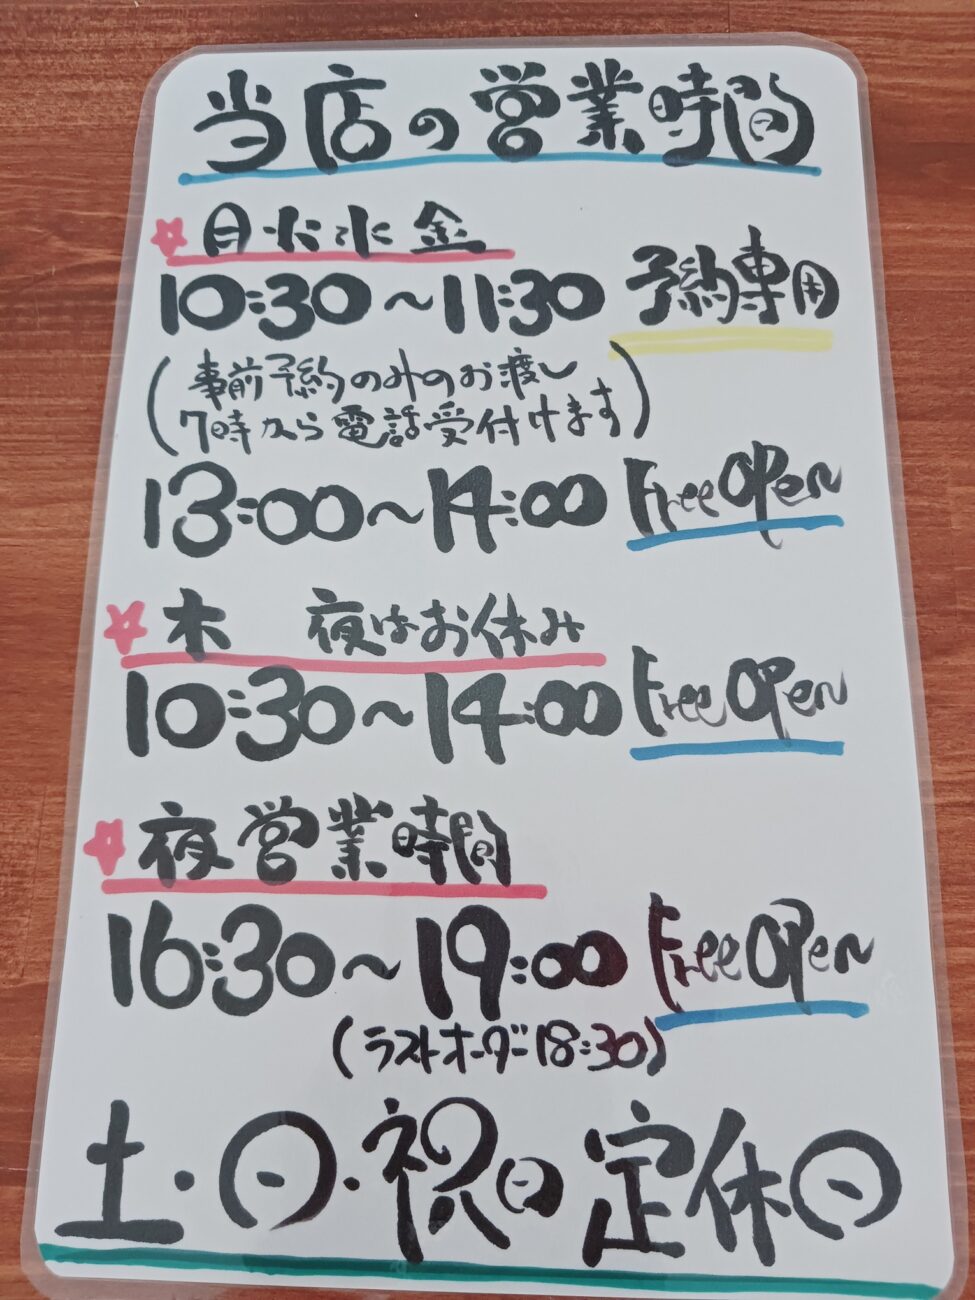 当店の営業時間
月火水金
10:30~11:30 予約専用
(事前予約のみのお渡し
7時から電話受付けます)
13:00~14:00 Free Open
木 夜はお休み
10:30~14:00 Free Open
夜営業時間
16:30~19:00 Free Open
(ラストオーダー18:30)
土・日・祝日定休日